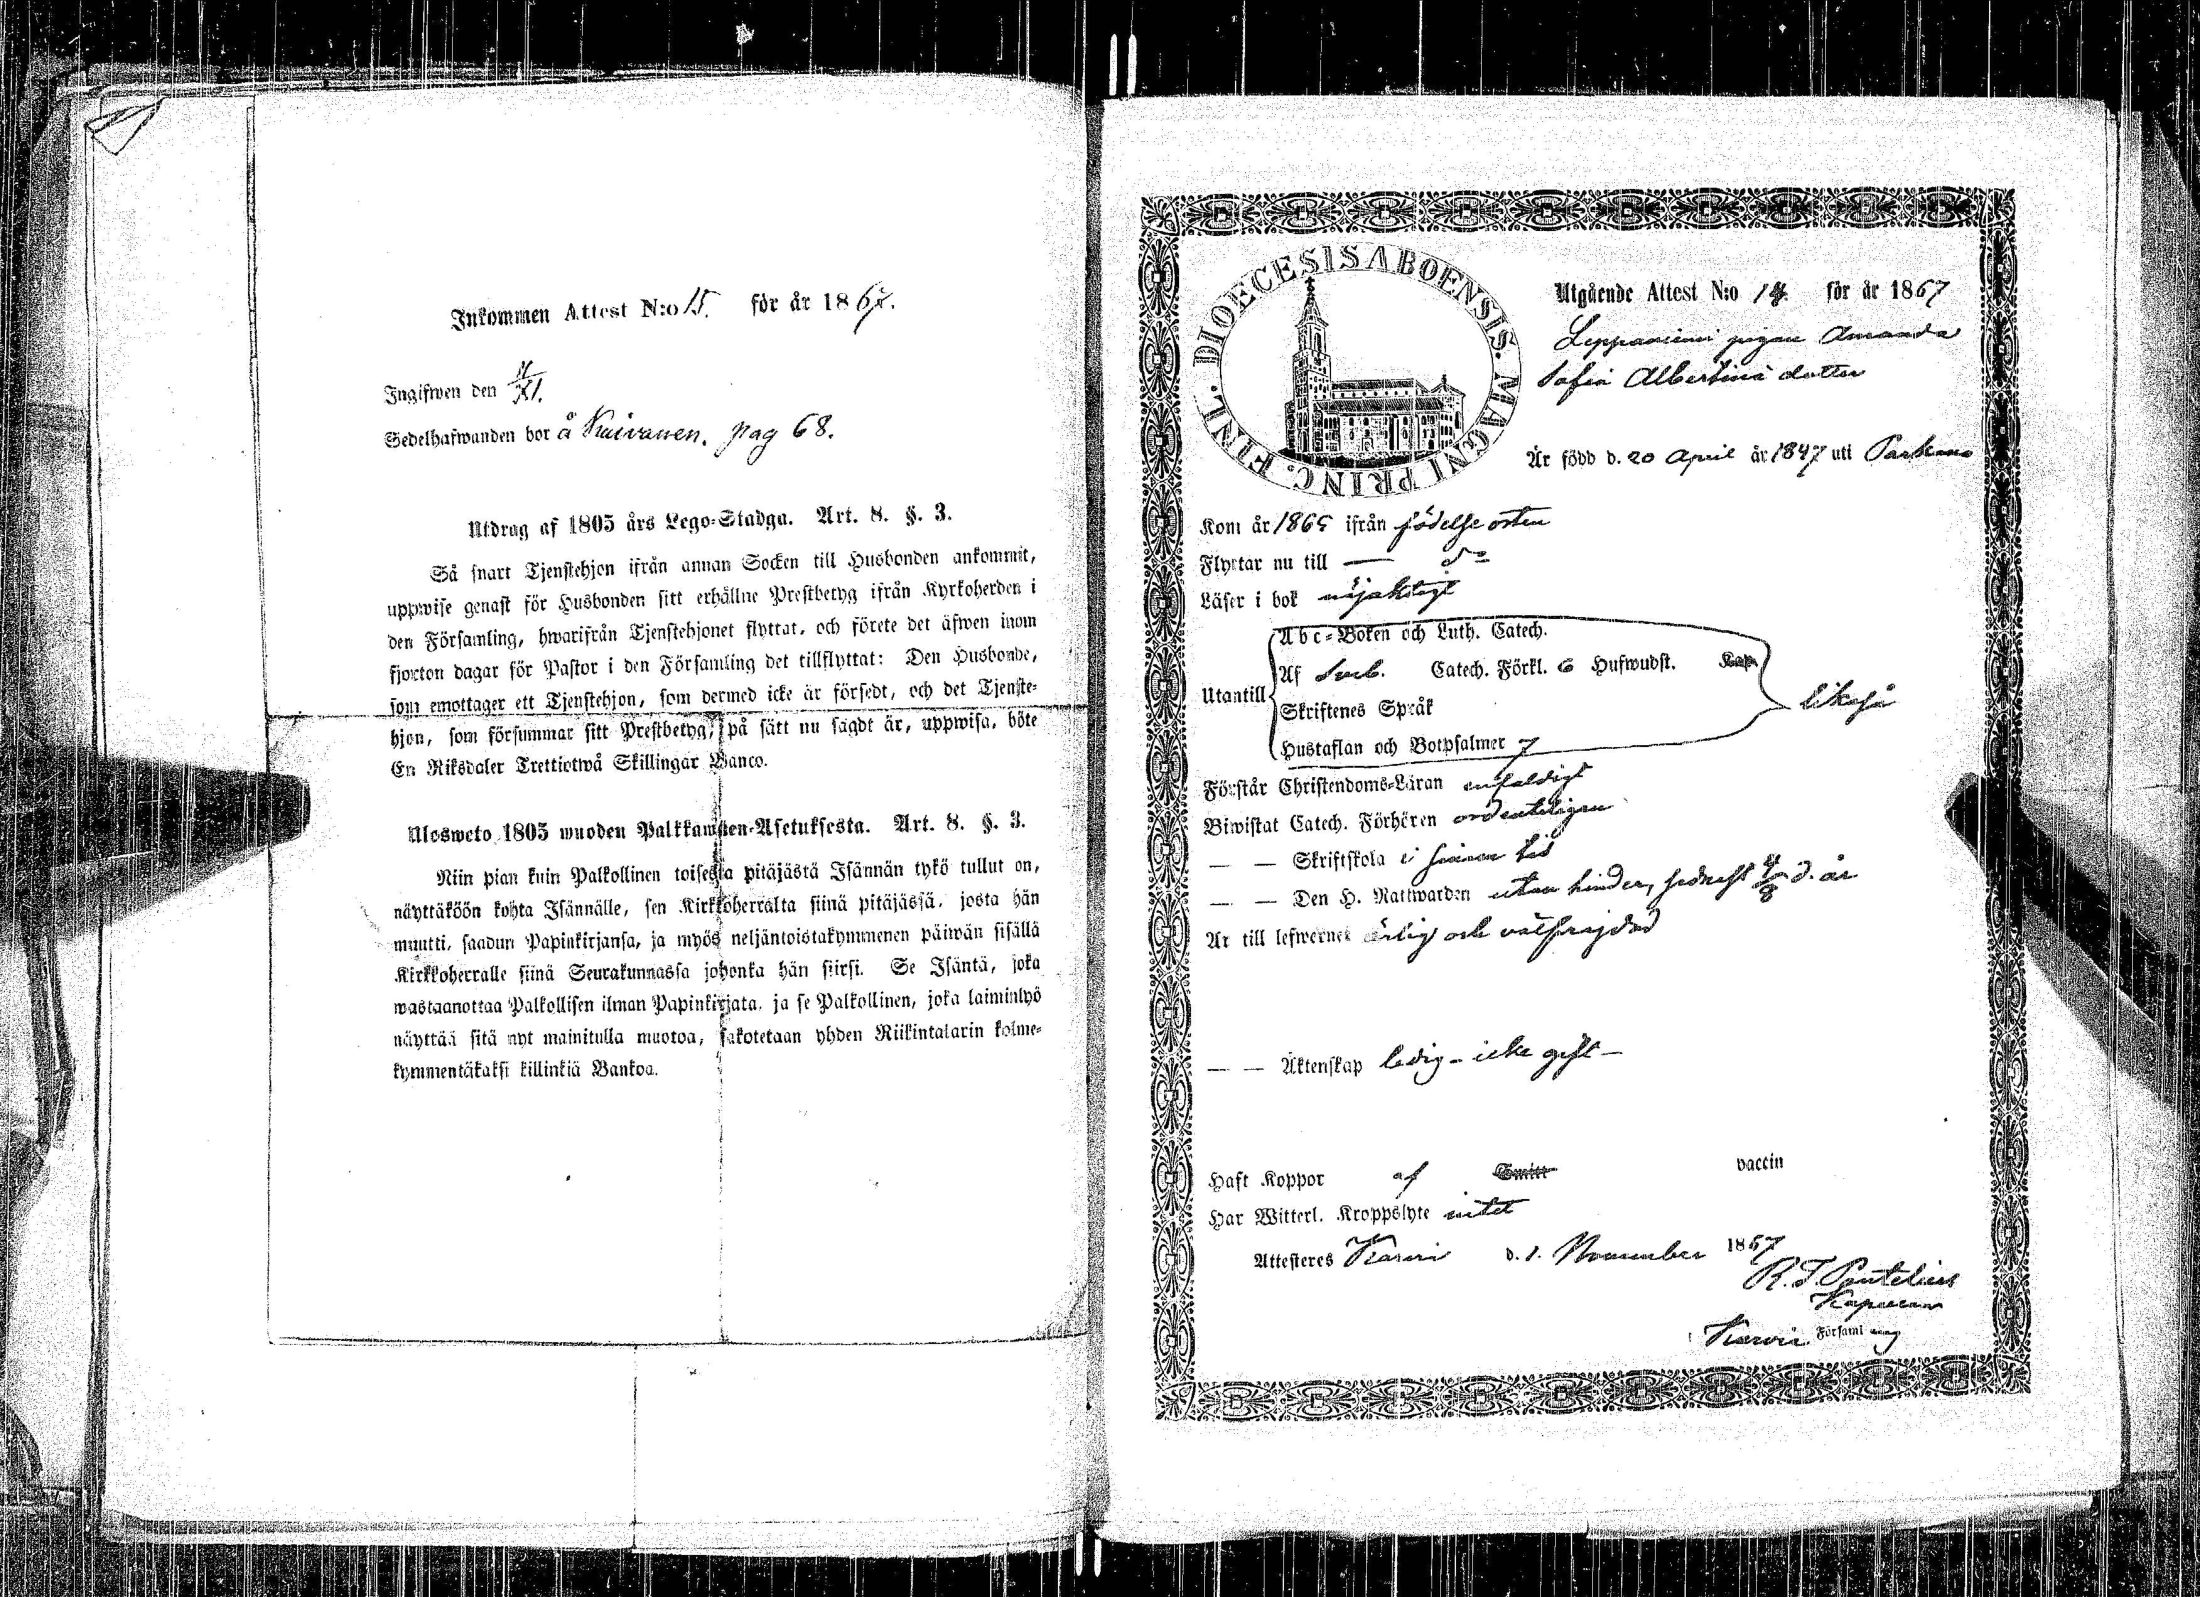 Inkommen Attest N:o 15. för år 1867.
Ingifwen den 11/XI.
Sedelhafwanden bor å Kuivanen. pag 68.
Utdrag af 1805 års Lego-Stadga. Art. 8. §. 3.
Så snart Tjenstehjon ifrån annan Socken till Husbonden ankommit,
uppwise genast för Husbonden sitt erhållne Prestbetyg ifrån Kyrkoherden i
den Församling, hwarifrån Tjenstehjonet flyttat, och förete det äfwen inom
fjorton dagar för Pastor i den Församling det tillflyttat: Den Husbonde,
som emottager ett Tjenstehjon, som dermed icke är försedt, och det Tjenste-
hjon, som försummar sitt Prestbetyg, på sätt nu sagdt är, uppwisa, böte
En Riksdaler Trettiotwå Skillingar Banco.
Ulosweto 1805 wuoden Palkkawäen-Asetuksesta. Art. 8. §. 3.
Niin pian kuin Palkollinen toisesta pitäjästä Isännän tykö tullut on,
näyttäköön kohta Isännälle, sen Kirkkoherralta siinä pitäjässä, josta hän
muutti, saadun Papinkirjansa, ja myös neljäntoistakymmenen päiwän sisällä
Kirkkoherralle siinä Seurakunnassa johonka hän siirsi. Se Isäntä, joka
wastaanottaa Palkollisen ilman Papinkirjata, ja se Palkollinen, joka laiminlyö
näyttää sitä nyt mainitulla muotoa, sakotetaan yhden Riikintalarin kolme-
kymmentäkaksi killinkiä Bankoa.
DIOECESIS ABOENSIS. MAGNI PRINC. FINL.
Utgående Attest N:o 14. för år 1867
Leppäniemi pigan Amanda
Sofia Albertina dotter
Är född d. 20 April år 1847 uti Parkano
Kom år 1865 ifrån födelse orten
Flyttar nu till — d:o
Läser i bok nöjaktigt
Abc-Boken och Luth. Catech.
Af Sveb. Catech. Förkl. 6 Hufwudst. Kap
Utantill likaså
Skriftenes Språk
Hustaflan och Botpsalmer 7
Förstår Christendoms-Läran enfaldigt
Biwistat Catech. Förhören ordenteligen
— — Skriftskola i sinom tid
— — Den H. Nattwarden utan hinder, sednast 4/8 d. år
Är till lefwernet ärlig och välfrejdad
— — Äktenskap ledig - icke gift —
Haft Koppor af Smitt vaccin
Har Witterl. Kroppslyte intet
Attesteres Karvia d. 1. November 1867
Kapellan
Karvia Församling